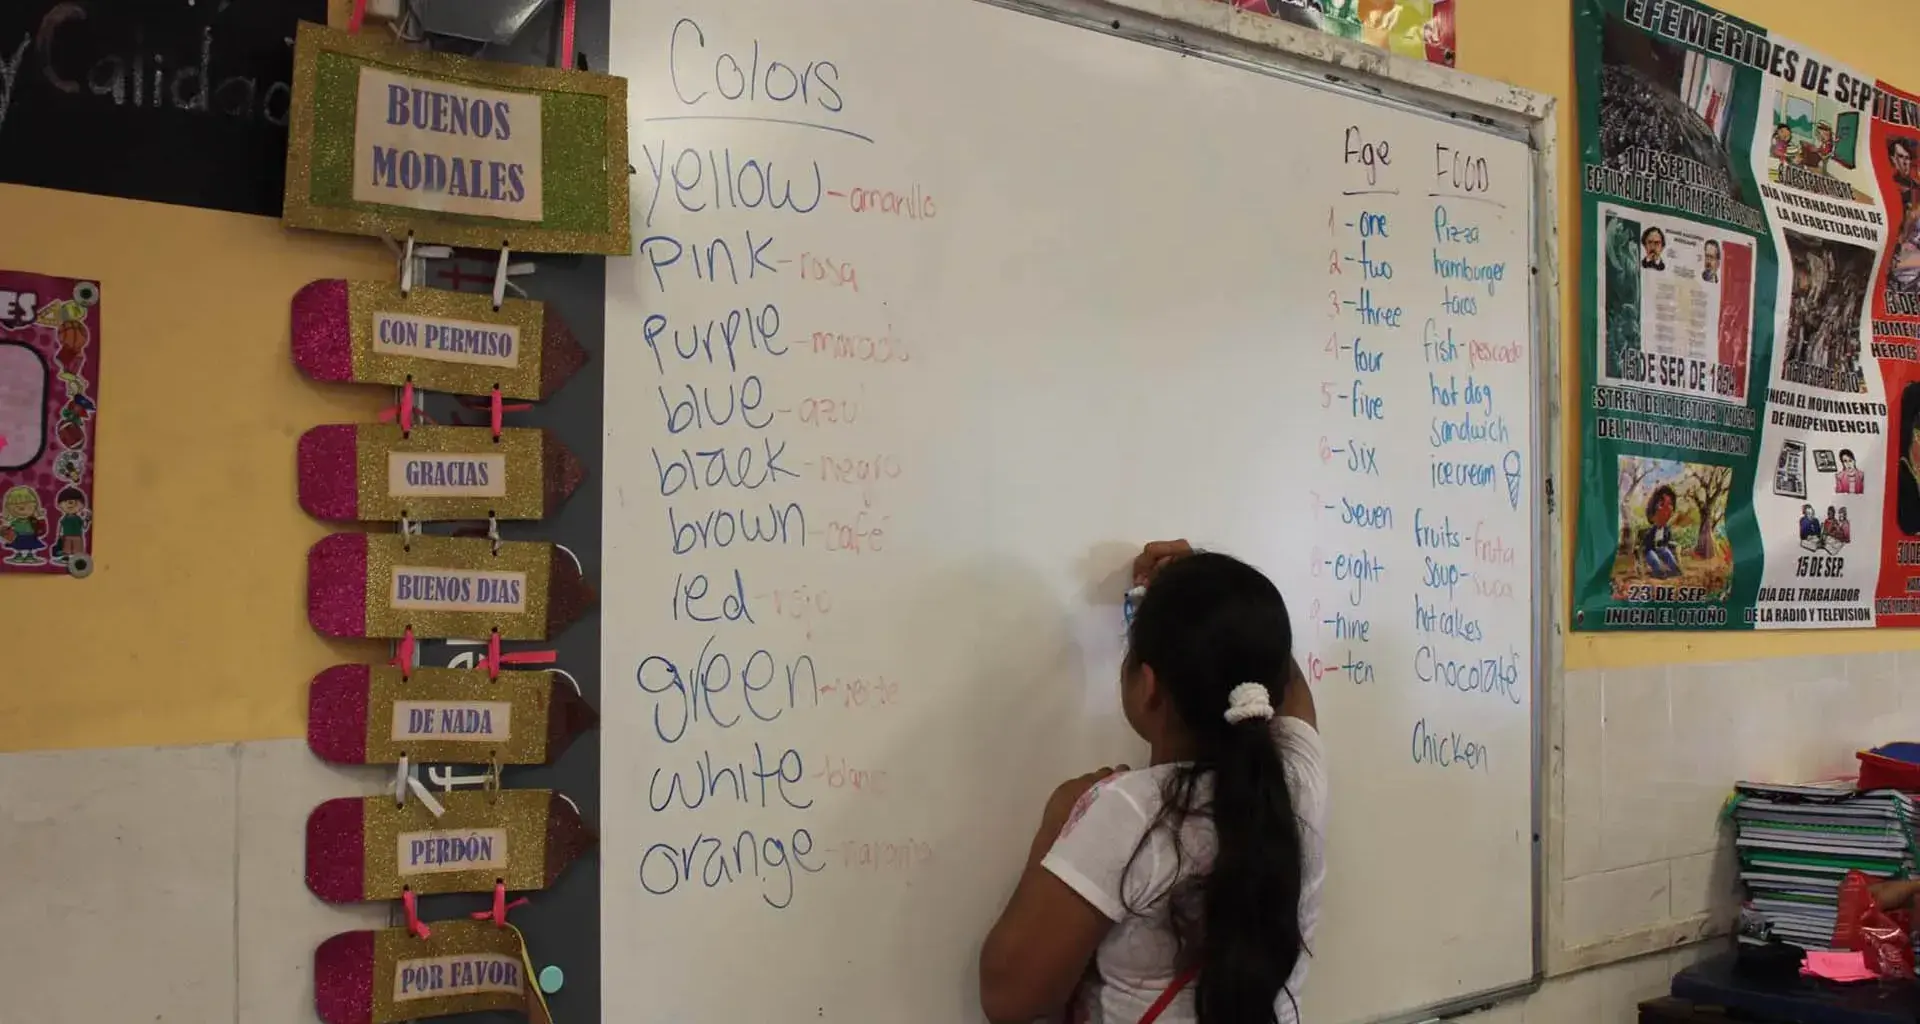 y Calidad
BUENOS
MODALES
CON PERMISO
GRACIAS
BUENOS DIAS
DE NADA
PERDÓN
POR FAVOR
ES
Colors
yellow-amarillo
Pink-rosa
Purple-morado
blue-azul
black-negro
brown-café
red-rojo
green-verde
white-blanc
orange-naranja
Age
1-one
2-two
3-three
4-four
5-five
6-six
7-seven
8-eight
9-nine
10-ten
FOOD
Pizza
hamburger
tacos
fish-pescado
hot dog
sandwich
ice cream
fruits-fruta
soup-sopa
hot cakes
Chocolates
Chicken
EFEMÉRIDES DE SEPTIEM
1 DE SEPTIEMBRE
ECTURA DEL INFORME PRESIDENCIAL
8 DE SEPTIEMBRE
DÍA INTERNACIONAL DE
LA ALFABETIZACIÓN
15 DE SEP. DE 1854
ESTRENO DE LA LECTURA Y MÚSICA
DEL HIMNO NACIONAL MEXICANO
16 DE SEP. DE 1810
INICIA EL MOVIMIENTO
DE INDEPENDENCIA
23 DE SEP.
INICIA EL OTOÑO
15 DE SEP.
DÍA DEL TRABAJADOR
DE LA RADIO Y TELEVISION
13 DE
HOMEN
HÉROES
30 DE